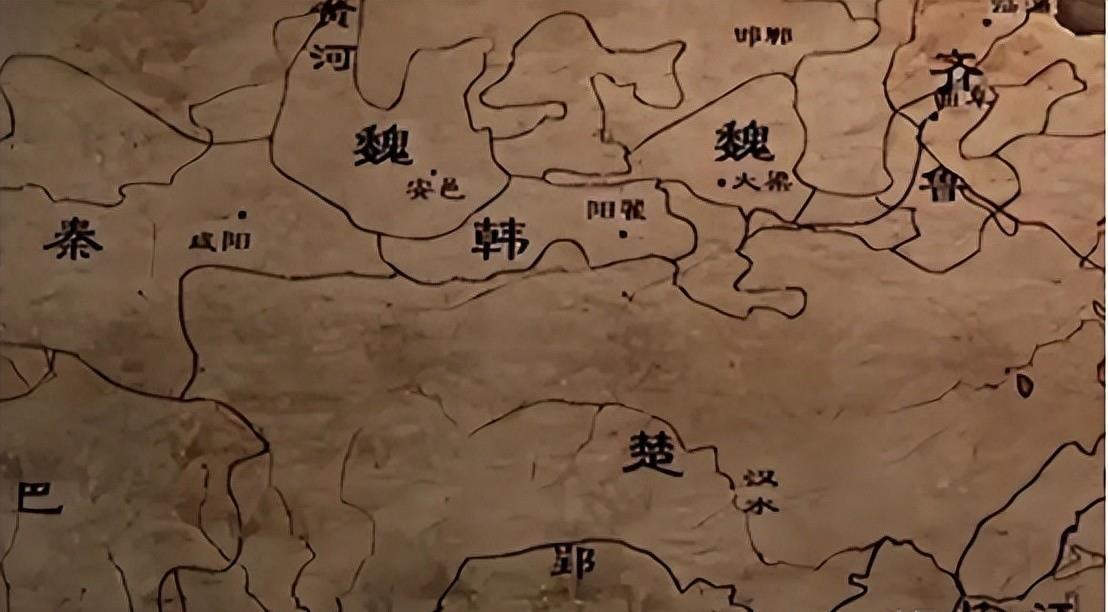 黄河
邯郸
临淄
齐
曲阜
魏
安邑
魏
大梁
鲁
阳翟
秦
咸阳
韩
楚
汉水
巴
郢